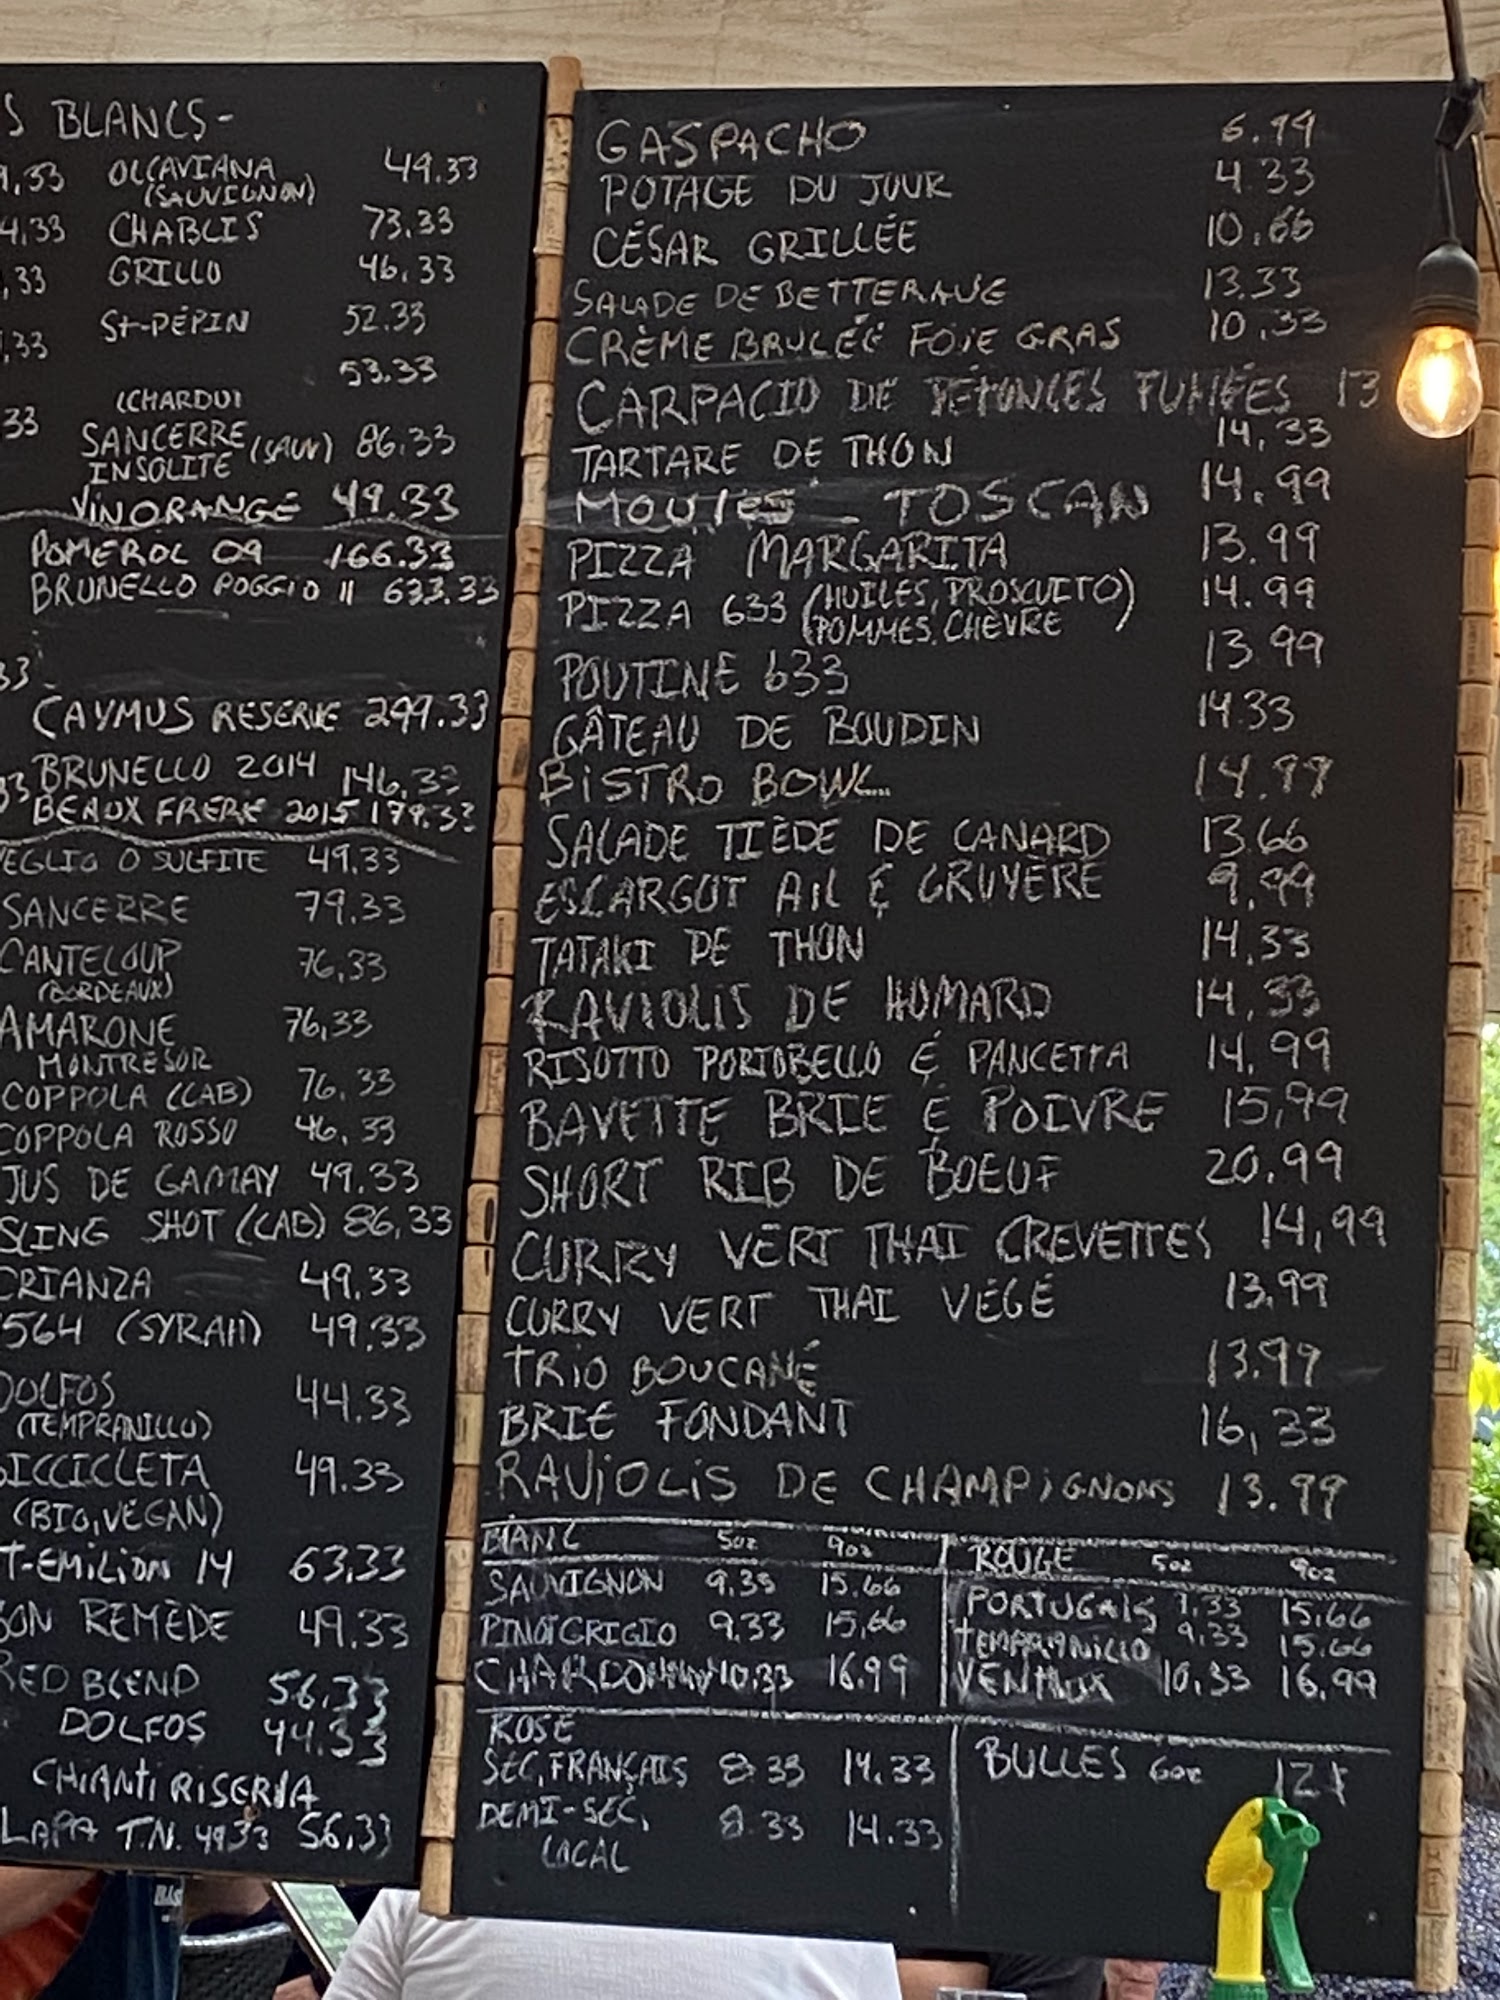 S BLANCS-
OLCAVIANA 49.33
(SAUVIGNON)
4,33 CHABLIS 73.33
,33 GRILLO 46.33
,33 St-PÉPIN 52.33
53.33
33 (CHARDO)
SANCERRE (SAUV) 86.33
INSOLITE
VIN ORANGE 49.33
POMEROL 09 166.33
BRUNELLO POGGIO 11 633.33
33
CAYMUS RESERVE 299.33
33 BRUNELLO 2014 146,33
BEAUX FRERE 2015 179.33
VEGLIO O SULFITE 49.33
SANCERRE 79.33
CANTELOUP 76,33
(BORDEAUX)
AMARONE 76,33
MONTRESOR
COPPOLA (CAB) 76.33
COPPOLA ROSSO 46.33
JUS DE GAMAY 49.33
SLING SHOT (CAB) 86,33
CRIANZA 49.33
564 (SYRAH) 49.33
DOLFOS 44.33
(TEMPRANILLO)
BICCICLETA 49.33
(BIO, VÉGAN)
T-EMILION 14 63,33
BON REMÈDE 49.33
RED BLEND 56.33
DOLFOS 44.33
CHIANTI RISERVA
LAPA T.N. 49.33 56,33
GASPACHO 6.99
POTAGE DU JOUR 4.33
CÉSAR GRILLÉE 10.66
SALADE DE BETTERAVE 13.33
CRÈME BRULÉE FOIE GRAS 10.33
CARPACIO DE PÉTONCLES FUMÉES 13
TARTARE DE THON 14.33
MOULES - TOSCAN 14.99
PIZZA MARGARITA 13.99
PIZZA 633 (HUILES, PROSCUITO) 14.99
(POMMES, CHÈVRE
POUTINE 633 13.99
GÂTEAU DE BOUDIN 14.33
BISTRO BOWL... 14.99
SALADE TIÈDE DE CANARD 13.66
ESCARGOT AIL & GRUYÈRE 9.99
TATAKI DE THON 14.33
RAVIOLIS DE HOMARD 14.33
RISOTTO PORTOBELLO & PANCETTA 14.99
BAVETTE BRIE & POIVRE 15,99
SHORT RIB DE BOEUF 20.99
CURRY VERT THAI CREVETTES 14,99
CURRY VERT THAI VÉGÉ 13.99
TRIO BOUCANÉ 13.99
BRIE FONDANT 16,33
RAVIOLIS DE CHAMPIGNONS 13.99
BLANC 5oz 9oz
SAUVIGNON 9.33 15.66
PINOT GRIGIO 9.33 15,66
CHARDONNAY 10.33 16.99
ROUGE 5oz 9oz
PORTUGAIS 9.33 15.66
TEMPRANILLO 9.33 15.66
VENTOUX 10.33 16.99
ROSE
SEC, FRANÇAIS 8.33 14.33
DEMI-SEC, 8.33 14.33
LOCAL
BULLES 6oz 12$